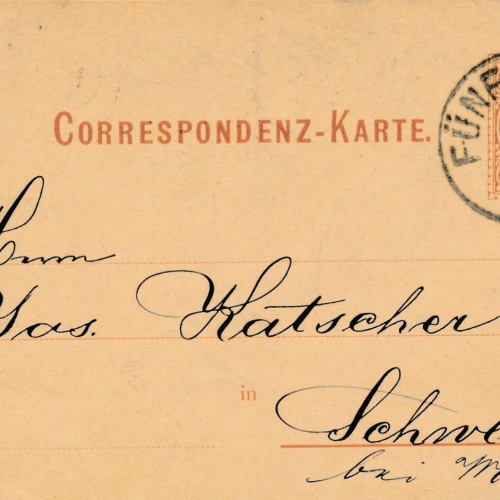 CORRESPONDENZ-KARTE.
FÜNF
Herrn
Jos. Katscher
in
Schwe
bei